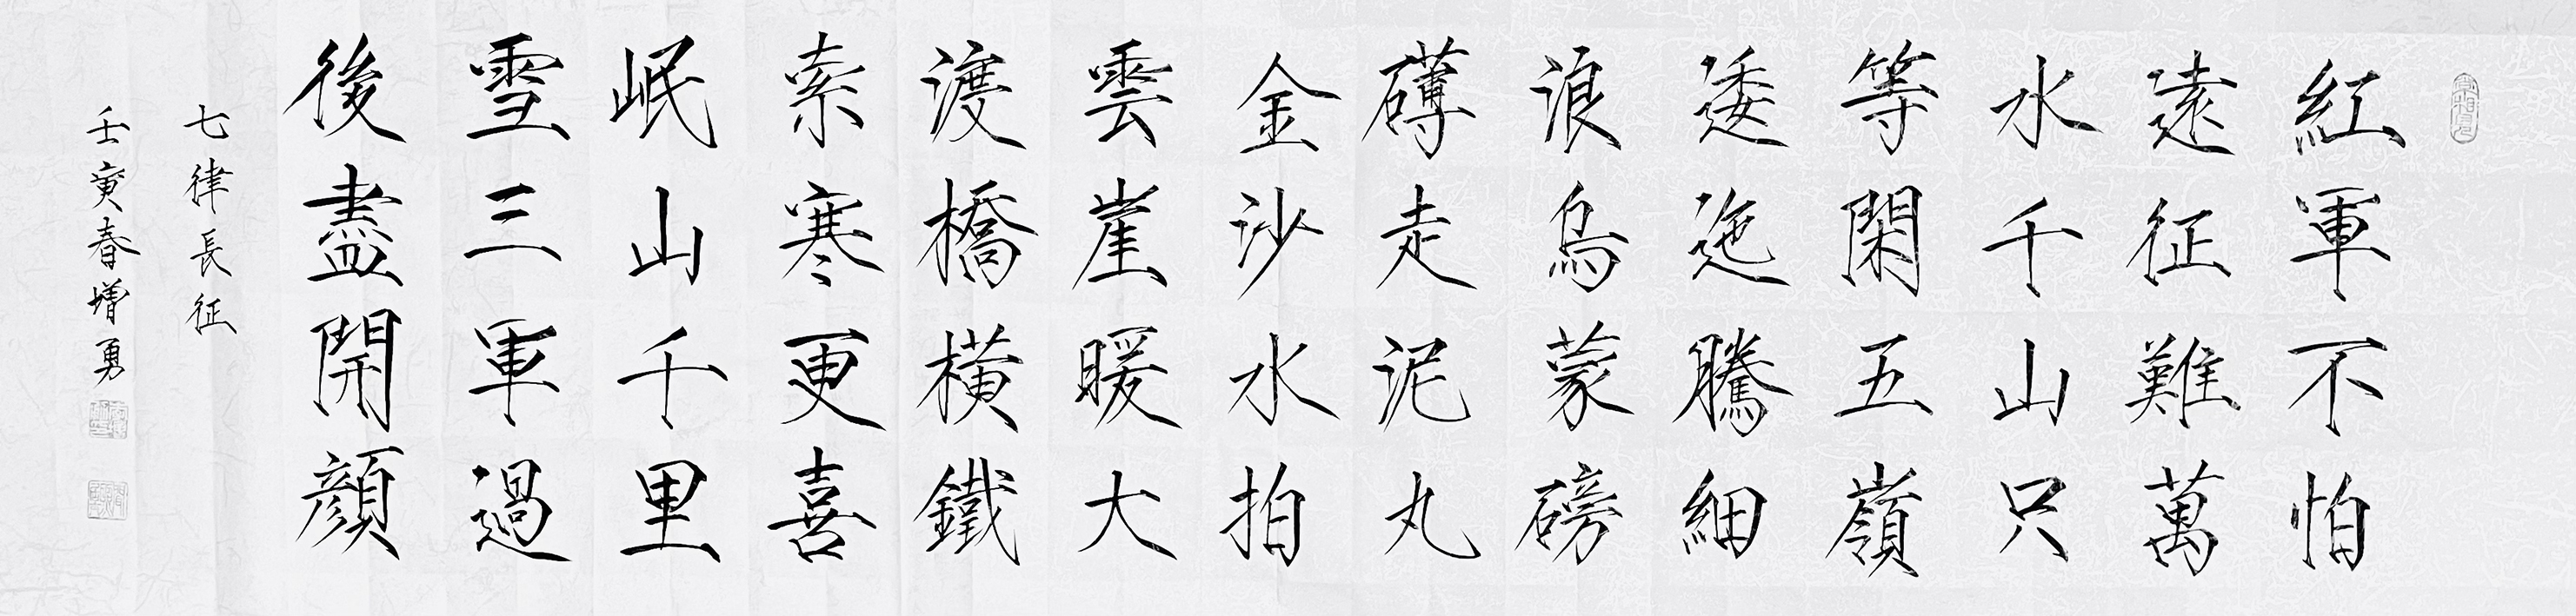 紅軍不怕
遠征難萬
水千山只
等閑五嶺
逶迤騰細
浪烏蒙磅
礴走泥丸
金沙水拍
雲崖暖大
渡橋橫鐵
索寒更喜
岷山千里
雪三軍過
後盡開顏
七律長征
壬寅春增勇